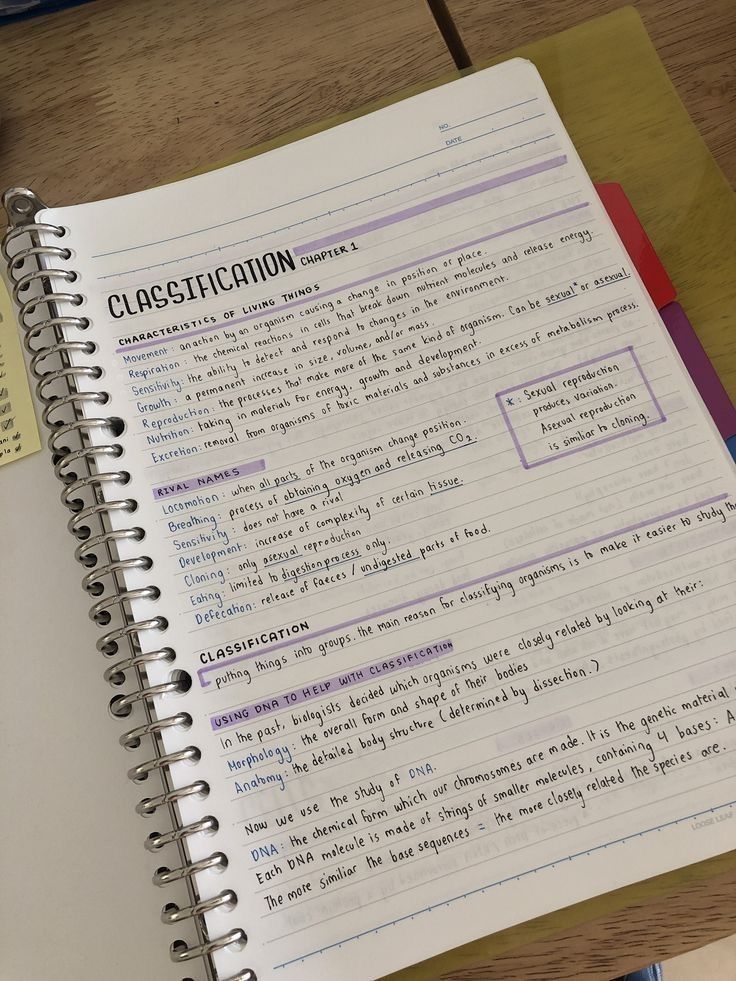 NO.
DATE
CLASSIFICATION CHAPTER 1
CHARACTERISTICS OF LIVING THINGS
Movement: an action by an organism causing a change in position or place.
Respiration: the chemical reactions in cells that break down nutrient molecules and release energy.
Sensitivity: the ability to detect and respond to changes in the environment.
Growth: a permanent increase in size, volume, and/or mass.
Reproduction: the processes that make more of the same kind of organism. Can be sexual* or asexual.
Nutrition: taking in materials for energy, growth and development.
Excretion: removal from organisms of toxic materials and substances in excess of metabolism process.
*: Sexual reproduction
produces variation.
Asexual reproduction
is similiar to cloning.
RIVAL NAMES
Locomotion: when all parts of the organism change position.
Breathing: process of obtaining oxygen and releasing CO2.
Sensitivity: does not have a rival
Development: increase of complexity of certain tissue.
Cloning: only asexual reproduction
Eating: limited to digestion process only.
Defecation: release of faeces / undigested parts of food.
CLASSIFICATION
putting things into groups. the main reason for classifying organisms is to make it easier to study
USING DNA TO HELP WITH CLASSIFICATION
In the past, biologists decided which organisms were closely related by looking at their:
Morphology: the overall form and shape of their bodies
Anatomy: the detailed body structure (determined by dissection.)
Now we use the study of DNA.
DNA: the chemical form which our chromosomes are made. It is the genetic material
Each DNA molecule is made of strings of smaller molecules, containing 4 bases: A
The more similiar the base sequences = the more closely related the species are.
LOOSE LEAF